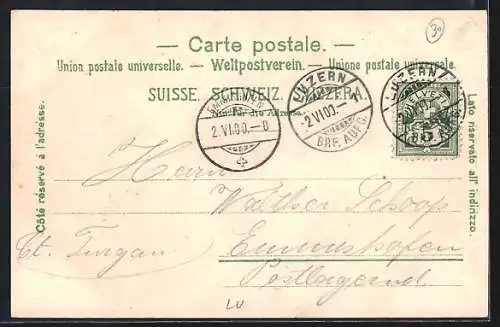 30
— Carte postale. —
Union postale universelle. — Weltpostverein. — Unione postale universale.
SUISSE. SCHWEIZ. SVIZZERA.
Nur für die Adresse.
LUZERN
2.VI.00.
BRF. AUFG.
LUZERN
HELVETIA
5
2.VI.00.–8
Côté réservé à l'adresse.
Lato riservato all' indirizzo.
Herrn
Walther Schoop
Emmishofen
Ct. Turgau
Postlagernd.
LU